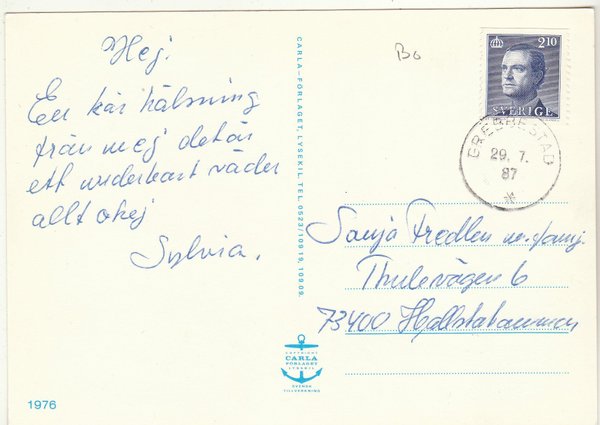 Hej.
En kär hälsning
från mej det är
ett underbart väder
allt okej
Sylvia.
CARLA-FÖRLAGET, LYSEKIL. TEL. 0523/109 19, 109 09.
COPYRIGHT
CARLA
FÖRLAGET
LYSEKIL
SVENSK
TILLVERKNING
1976
Bo
210
SVERIGE
GREBBESTAD
29. 7.
87
Sanja Fredlen m. famj.
Thulevägen 6
73400 Hallstahammar